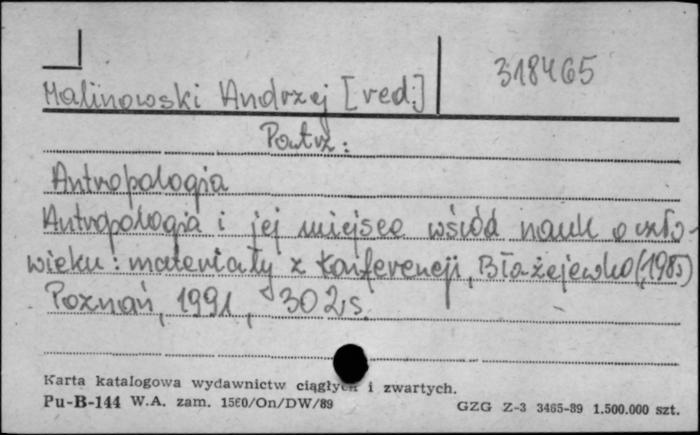 318465
Malinowski Andrzej [red.]
Patrz:
Antropologia
Antropologia i jej miejsce wśród nauk o czło-
wieku: materiały z konferencji, Błażejewko (1985)
Poznań, 1991, 302 s.
Karta katalogowa wydawnictw ciągłych i zwartych.
Pu-B-144 W.A. zam. 1560/On/DW/89
GZG Z-3 3465-89 1.500.000 szt.